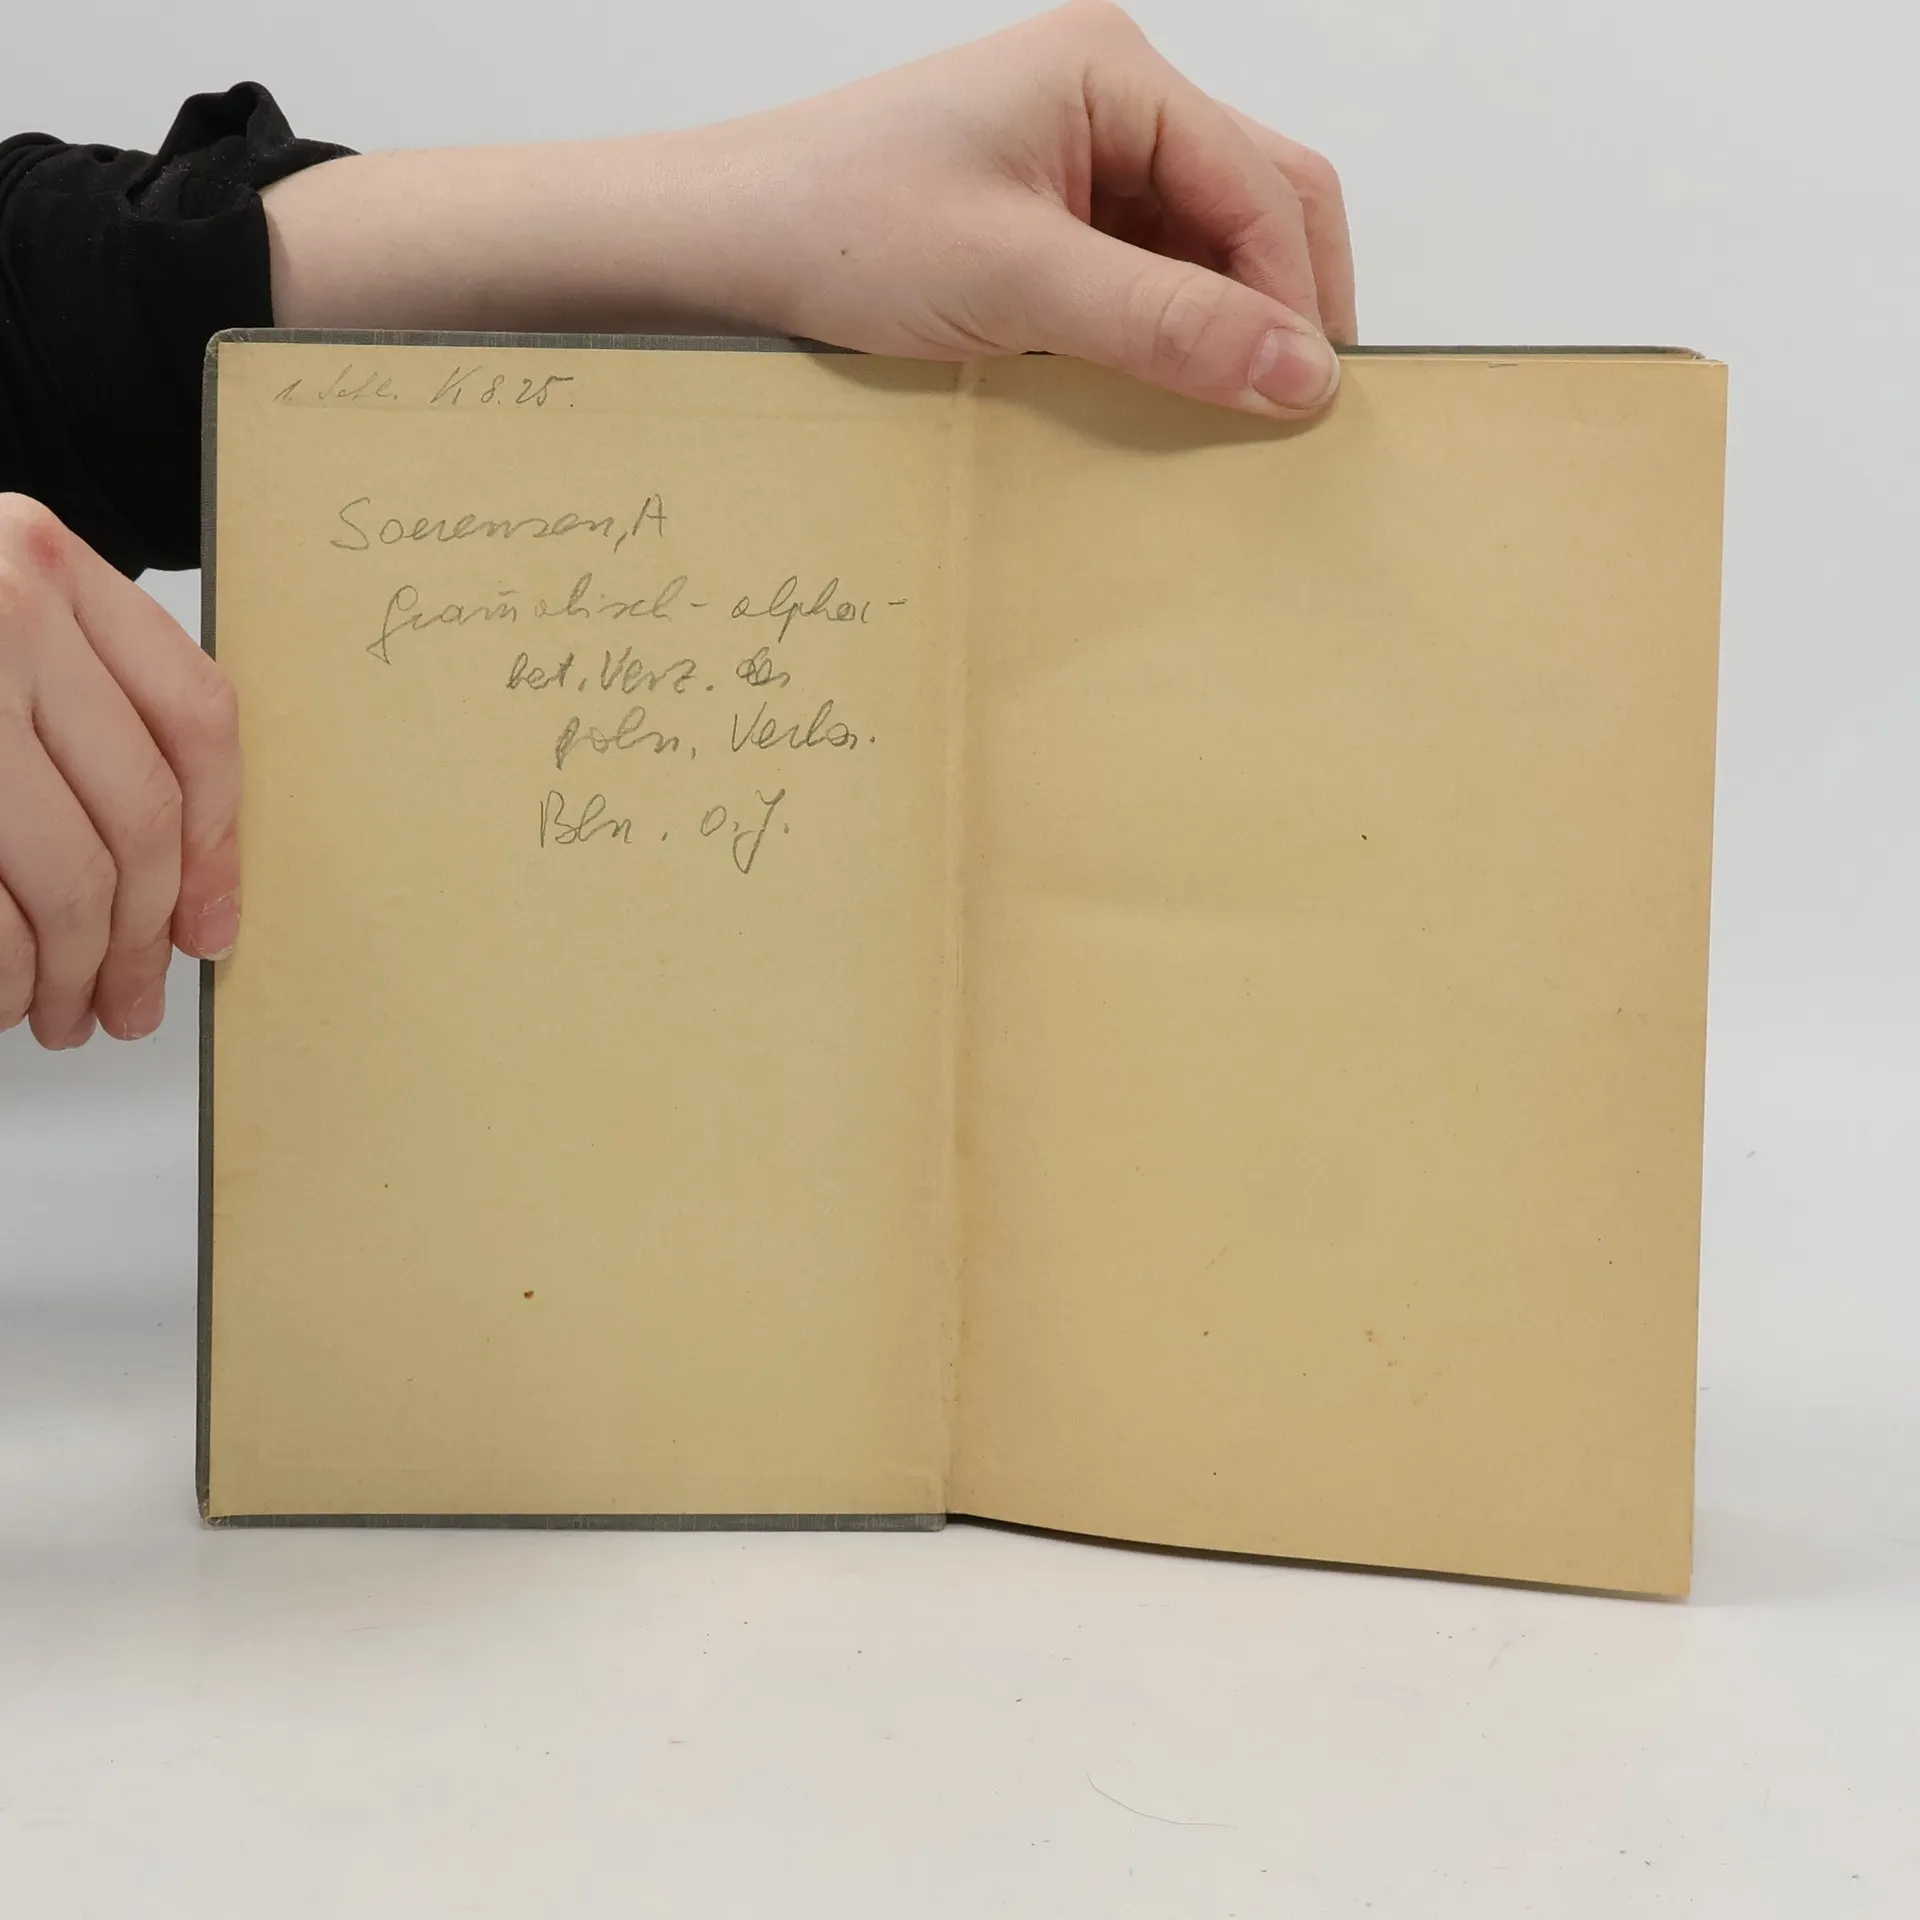 1. K 8.25.
Soerensen, A
Gram̄atisch - alpha-
bet. Verz. der
poln. Verba.
Bln. o.J.